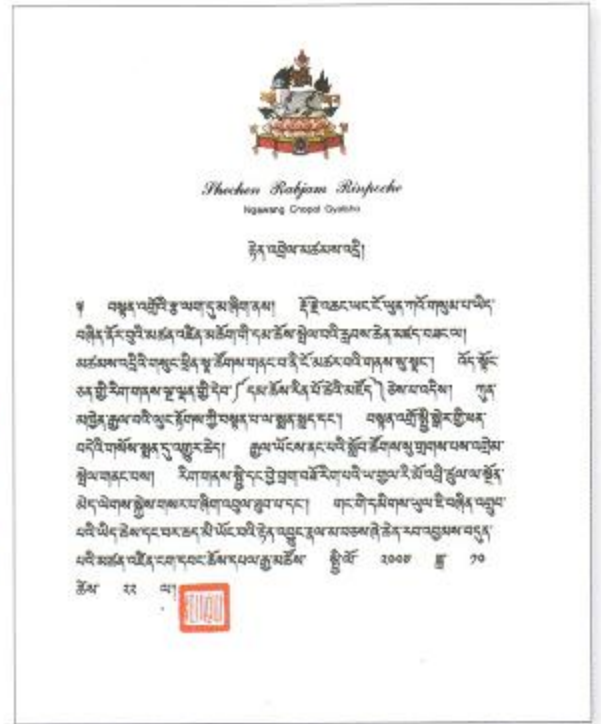 Shechen Rabjam Rinpoche
Ngawang Chopel Gyatsho
རྟེན་འབྲེལ་མཚམས་འདྲི།
༄ བསྟན་འགྲོའི་རྩ་ལག་ཏུ་མ་ཞིག་ནས། རྡོ་རྗེ་འཆང་ཡང་ངོ་ཡུན་ཀའོ་གསུམ་པ་ཡིད་
བཞིན་ནོར་བུའི་མཚན་འཛིན་མཆོག་གི་དམ་ཆོས་སྤེལ་བའི་རླབས་ཆེན་མཛད་བཟང་ལ།
མཚམས་འདྲིའི་གསུང་ཤྲིན་སྣ་ཚོགས་གནང་བ་ནི་ངོ་མཚར་བའི་གནས་སུ་སྣང་། འོད་སྟོང་
ཅན་གྱི་རིག་གནས་ལྔ་ལྡན་གྱི་དེབ་༼དམ་ཆོས་རིན་པོ་ཆེའི་མཛོད་༽ཅེས་པ་འདིས། ཀུན་
མཁྱེན་རྒྱལ་བའི་ལུང་རྟོགས་ཀྱི་བསྟན་པ་ལ་སྨན་སླད་དང་། བསྟན་འགྲོ་སྤྱི་སྒེར་གྱི་ཕན་
བདེའི་གསོས་སྨན་དུ་འགྱུར་ཆེད། རྒྱལ་ཡོངས་ནང་པའི་སློབ་ཚོགས་སུ་གྲགས་པས་འགྲེམ་
སྤེལ་གནང་བས། རིག་གནས་སྤྱི་དང་བྱེ་བྲག་བཟོ་རིག་པའི་ཡ་གྱལ་རི་མོ་འབྲི་ཚུལ་ལ་སྔོན་
མེད་ལེགས་སྐྱེས་གསར་པ་ཞིག་འབུལ་ཐུབ་པ་དང་། གང་གི་དམིགས་ཡུལ་ཇི་བཞིན་འགྲུབ་
པའི་ཡིད་ཆེས་དང་བར་ཆད་མི་ཡོང་བའི་རྟེན་འབྱུང་རྣལ་མ་བཅས་ཞེ་ཆེན་རབ་འབྱམས་བདུན་
པའི་མཚན་འཛིན་ངག་དབང་ཆོས་དཔལ་རྒྱ་མཚོས་ སྤྱི་ལོ་ ༢༠༠༧ ཟླ་ ༡༠
ཚེས་ ༢༢ ལ།